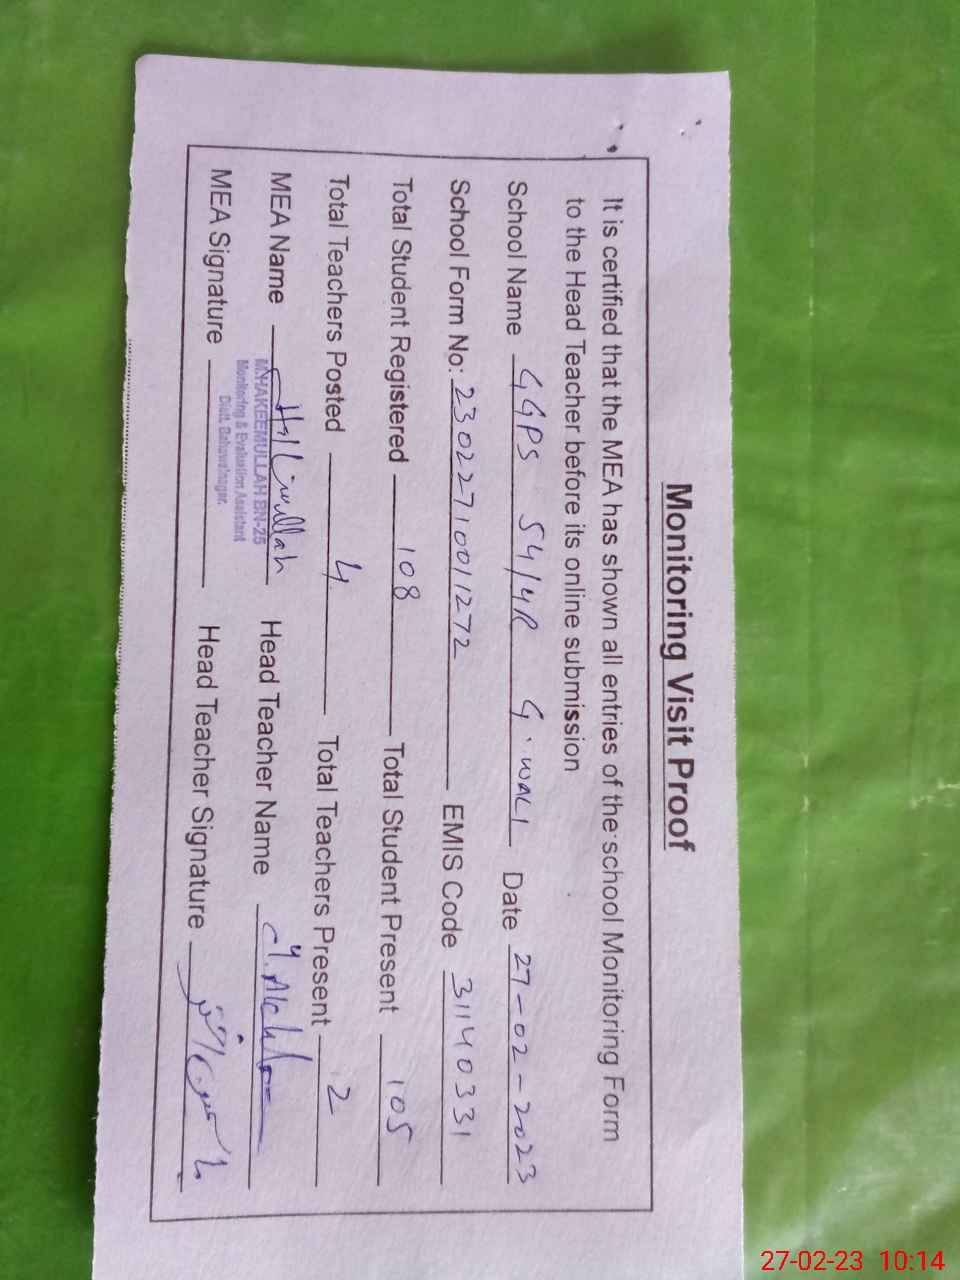 Monitoring Visit Proof
It is certified that the MEA has shown all entries of the school Monitoring Form
to the Head Teacher before its online submission
School Name GGPS 54/4R G.WALI Date 27-02-2023
School Form No: 23022710011272 EMIS Code 31140331
Total Student Registered 108 Total Student Present 105
Total Teachers Posted 4 Total Teachers Present 2
MEA Name Head Teacher Name
M.HAKEEMULLAH BN-25
Monitoring & Evaluation Assistant
Distt. Bahawalnagar.
MEA Signature Head Teacher Signature
27-02-23 10:14